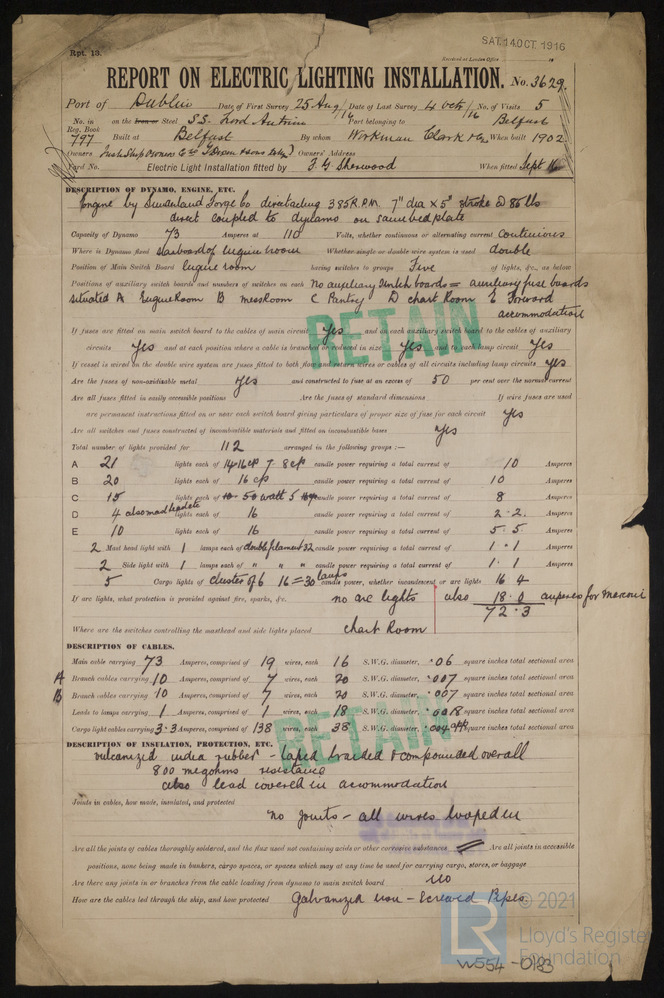 SAT. 14 OCT. 1916
Rpt. 13.
Received at London Office
REPORT ON ELECTRIC LIGHTING INSTALLATION. No. 3629.
Port of Dublin Date of First Survey 25 Aug/16 Date of Last Survey 4 Oct/16 No. of Visits 5
No. in on the Iron or Steel S.S. Lord Antrim Port belonging to Belfast
Reg. Book
797 Built at Belfast By whom Workman Clark & Co. When built 1902
Owners Irish Shipowners Co Ld Owners' Address
Yard No. Electric Light Installation fitted by F. G. Sherwood When fitted Sept 16
DESCRIPTION OF DYNAMO, ENGINE, ETC.
Engine by Sunderland Forge Co direct acting 385 R.P.M. 7" dia x 5" stroke @ 85 lbs
direct coupled to dynamo on same bedplate
Capacity of Dynamo 73 Amperes at 110 Volts, whether continuous or alternating current Continious
Where is Dynamo fixed starboard of Engine room Whether single or double wire system is used double
Position of Main Switch Board Engine room having switches to groups Five of lights, &c., as below
Positions of auxiliary switch boards and numbers of switches on each No auxiliary switch boards = auxiliary fuse boards
situated A Engine Room B messroom C Pantry D chart Room E Forward
accommodation
RETAIN
If fuses are fitted on main switch board to the cables of main circuit Yes and on each auxiliary switch board to the cables of auxiliary
circuits yes and at each position where a cable is branched or reduced in size yes and to each lamp circuit yes
If vessel is wired on the double wire system are fuses fitted to both flow and return wires or cables of all circuits including lamp circuits yes
Are the fuses of non-oxidizable metal yes and constructed to fuse at an excess of 50 per cent over the normal current
Are all fuses fitted in easily accessible positions Are the fuses of standard dimensions If wire fuses are used
are permanent instructions fitted on or near each switch board giving particulars of proper size of fuse for each circuit yes
Are all switches and fuses constructed of incombustible materials and fitted on incombustible bases yes
Total number of lights provided for 112 arranged in the following groups :—
A 21 lights each of 14 16 cp 7 8 cp candle power requiring a total current of 10 Amperes
B 20 lights each of 16 cp candle power requiring a total current of 10 Amperes
C 15 lights each of 10 50 watt 5 16 cp candle power requiring a total current of 8 Amperes
D 4 lights each of 16 candle power requiring a total current of 2.2. Amperes
E 10 lights each of 16 candle power requiring a total current of 5.5 Amperes
2 Mast head light with 1 lamps each of double filament 32 candle power requiring a total current of 1.1 Amperes
2 Side light with 1 lamps each of " " " candle power requiring a total current of 1.1 Amperes
5 Cargo lights of cluster of 6 16 = 30 lamps candle power, whether incandescent or arc lights 16 4
If arc lights, what protection is provided against fire, sparks, &c. no arc lights also 18.0 amperes for Marconi
72.3
Where are the switches controlling the masthead and side lights placed chart Room
DESCRIPTION OF CABLES.
Main cable carrying 73 Amperes, comprised of 19 wires, each 16 S.W.G. diameter, .06 square inches total sectional area
A Branch cables carrying 10 Amperes, comprised of 7 wires, each 20 S.W.G. diameter, .007 square inches total sectional area
B Branch cables carrying 10 Amperes, comprised of 7 wires, each 20 S.W.G. diameter, .007 square inches total sectional area
Leads to lamps carrying 1 Amperes, comprised of 1 wires, each 18 S.W.G. diameter, .0018 square inches total sectional area
Cargo light cables carrying 3.3 Amperes, comprised of 138 wires, each 38 S.W.G. diameter, square inches total sectional area
RETAIN
DESCRIPTION OF INSULATION, PROTECTION, ETC.
vulcanized india rubber - taped braided & compounded overall
800 megohms resistance
also lead covered in accommodation
Joints in cables, how made, insulated, and protected
no joints - all wires looped in
Are all the joints of cables thoroughly soldered, and the flux used not containing acids or other corrosive substances Are all joints in accessible
positions, none being made in bunkers, cargo spaces, or spaces which may at any time be used for carrying cargo, stores, or baggage
Are there any joints in or branches from the cable leading from dynamo to main switch board no
How are the cables led through the ship, and how protected Galvanized iron - Screwed Pipes.
LR
© 2021
Lloyd's Register
Foundation
W554-0183